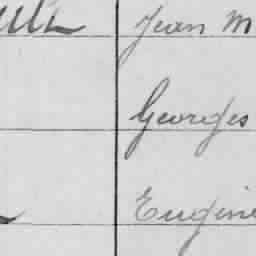 Jean M
Georges
Eugène